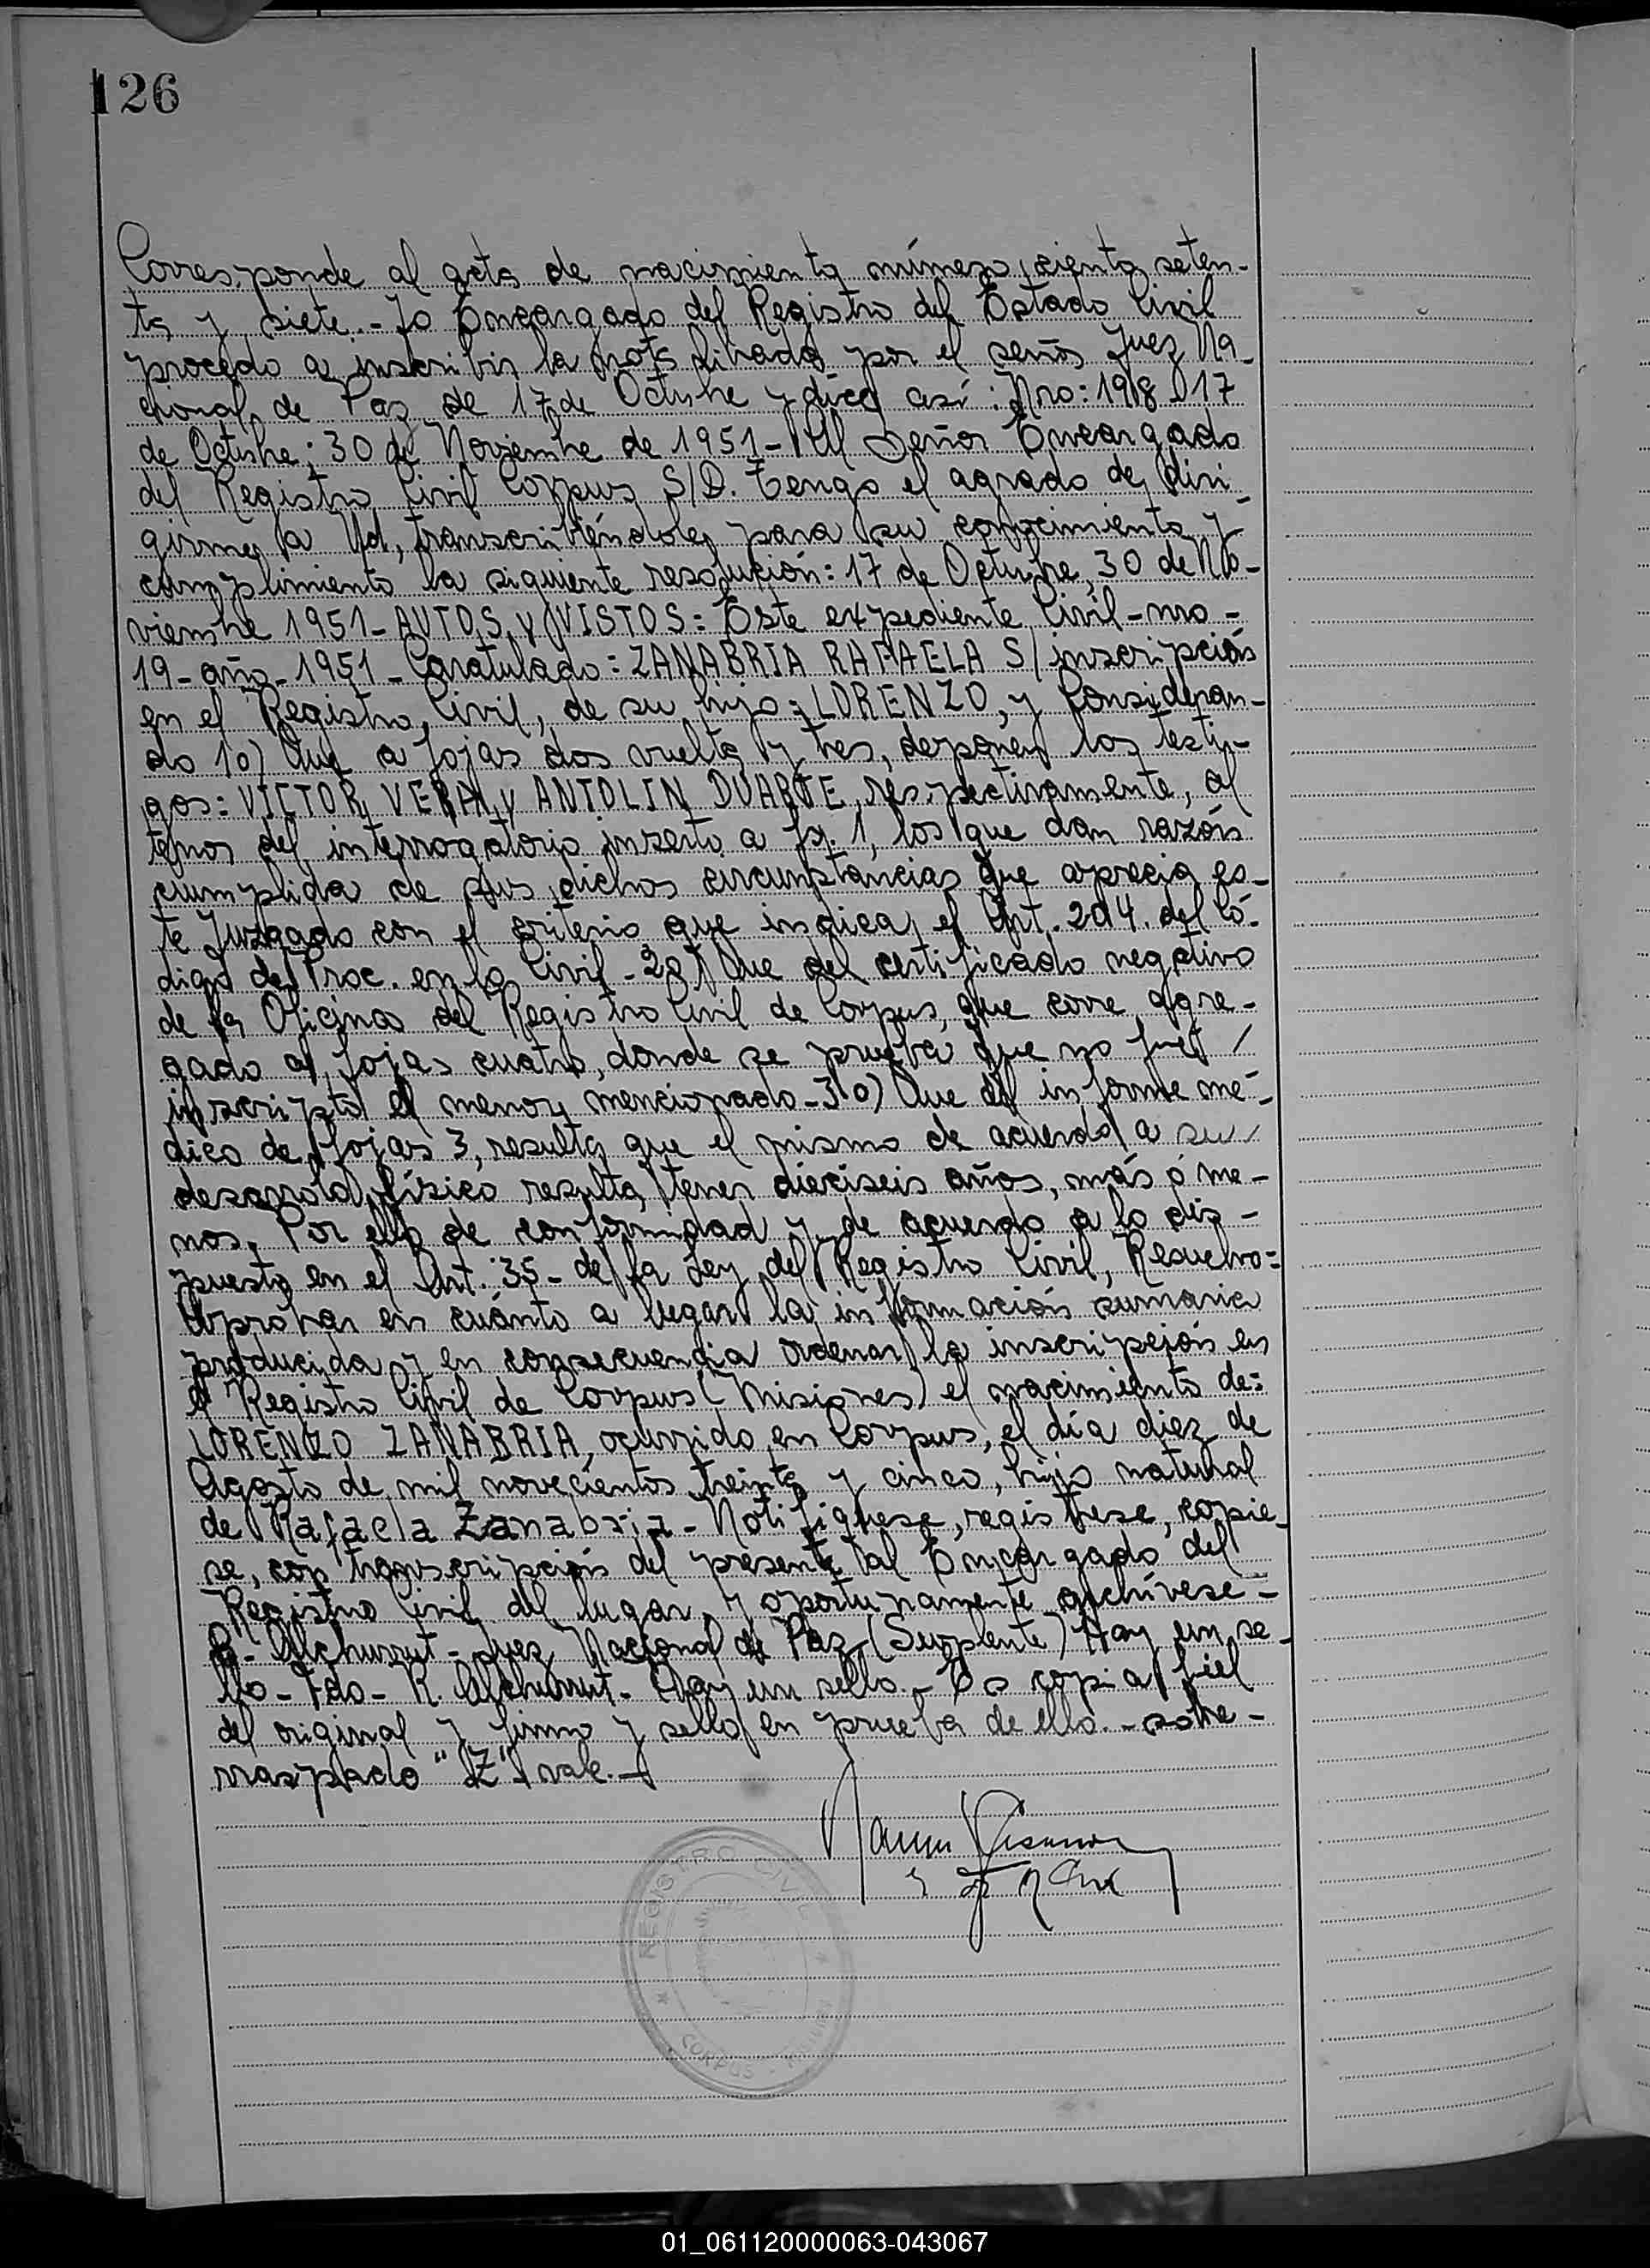 126
Corresponde al acta de nacimiento número ciento seten-
ta y siete.- Yo Encargado del Registro del Estado Civil
procedo a inscribir la nota librada por el señor Juez Na-
cional de Paz de 17 de Octubre y dice así: Nro: 198 17
de Octubre; 30 de Noviembre de 1951- Al Señor Encargado
del Registro Civil Corpus S/D. Tengo el agrado de diri-
girme a Ud, transcribiéndole para su conocimiento y
cumplimiento la siguiente resolución: 17 de Octubre, 30 de No-
viembre 1951- AUTOS y VISTOS: Este expediente Civil-nro-
19-año-1951- Caratulado: ZANABRIA RAFAELA S/inscripción
en el Registro Civil, de su hijo: LORENZO, y Consideran-
do 1o) Que a fojas dos vuelta y tres, deponen los testi-
gos: VICTOR VERA y ANTOLIN DUARTE, respectivamente, al
tenor del interrogatorio inserto a fs. 1, los que dan razón
cumplida de sus dichos circunstancias que aprecia es-
te Juzgado con el criterio que indica el Art. 204. del Có-
digo de Proc. en lo Civil-2o) Que del certificado negativo
de la Oficina del Registro Civil de Corpus, que corre agre-
gado a fojas cuatro, donde se prueba que no fué /
inscripto el menor mencionado-3o) Que del informe mé-
dico de fojas 3, resulta que el mismo de acuerdo a su
desarrollo físico resulta tener dieciseis años, más ó me-
nos. Por ello de conformidad y de acuerdo a lo dis-
puesto en el Art. 35- de la Ley del Registro Civil, Resuelvo:
Aprobar en cuánto a lugar la información sumaria
producida y en consecuencia ordenar la inscripción en
el Registro Civil de Corpus (Misiones) el nacimiento de:
LORENZO ZANABRIA, ocurrido en Corpus, el día diez de
Agosto de mil novecientos treinta y cinco, hijo natural
de Rafaela Zanabria- Notifíquese, regístrese, cópie-
se, con transcripción del presente al Encargado del
Registro Civil del lugar y oportunamente archívese-
R. Alchurrut- Juez Nacional de Paz (Suplente) Hay un se-
llo-Fdo-R. Alchurrut- Hay un sello.- Es copia fiel
del original y firmo y sello en prueba de ello.-sobre-
rraspado "Z" vale.-
REGISTRO CIVIL
CORPUS
01_061120000063-043067